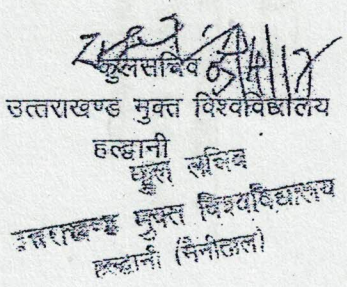 कुलसचिव
उत्तराखण्ड मुक्त विश्वविद्यालय
हल्द्वानी
कुल सचिव
उत्तराखण्ड मुक्त विश्वविद्यालय
हल्द्वानी (नैनीताल)